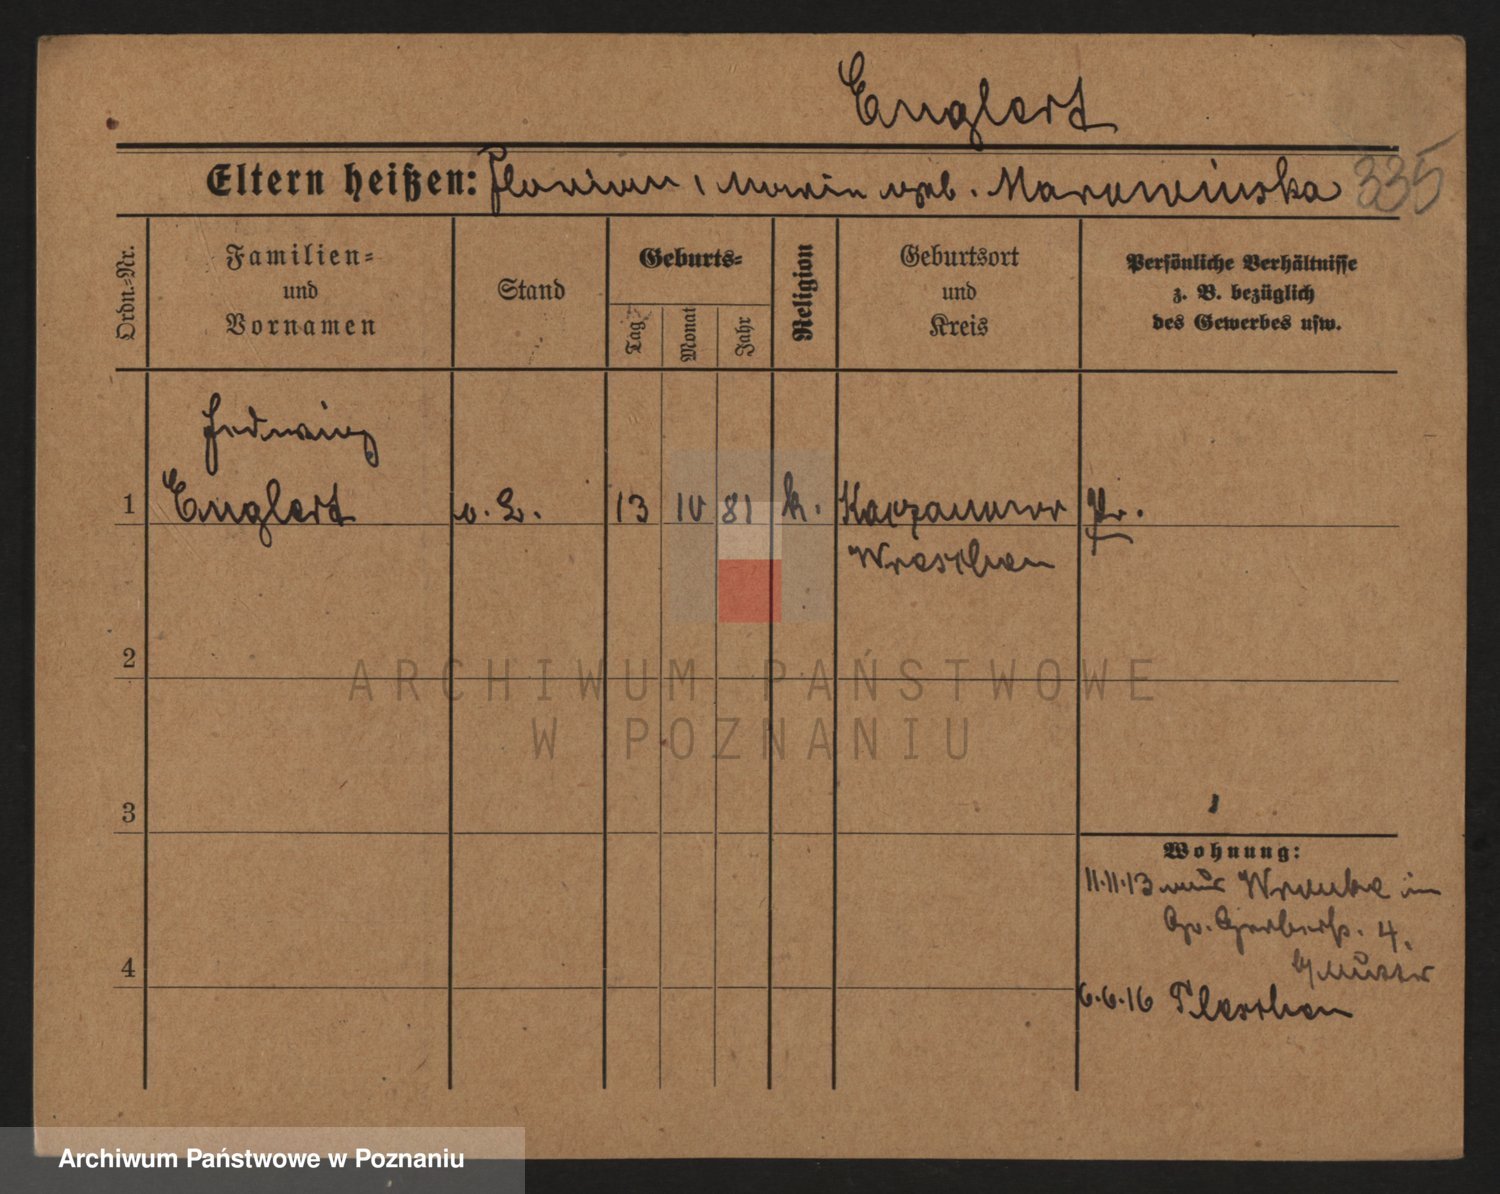 Englert
Eltern heißen: Florian, Maria geb. Marawinska 335
Ordn.-Nr.
Familien-
und
Vornamen
Stand
Geburts-
Tag
Monat
Jahr
Religion
Geburtsort
und
Kreis
Persönliche Verhältnisse
z. B. bezüglich
des Gewerbes usw.
Hedwig
1 Englert o. B. 13 10 81 k. Kaczanowo Pr.
Wreschen
2
ARCHIWUM PAŃSTWOWE
W POZNANIU
3
Wohnung:
11.11.13 aus Wronke in
Gr. Gerberstr. 4.
b/ Mutter
4
6.6.16 Pleschen
Archiwum Państwowe w Poznaniu